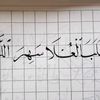 طَلَبَ العُلا سَهِرَ اللَّ